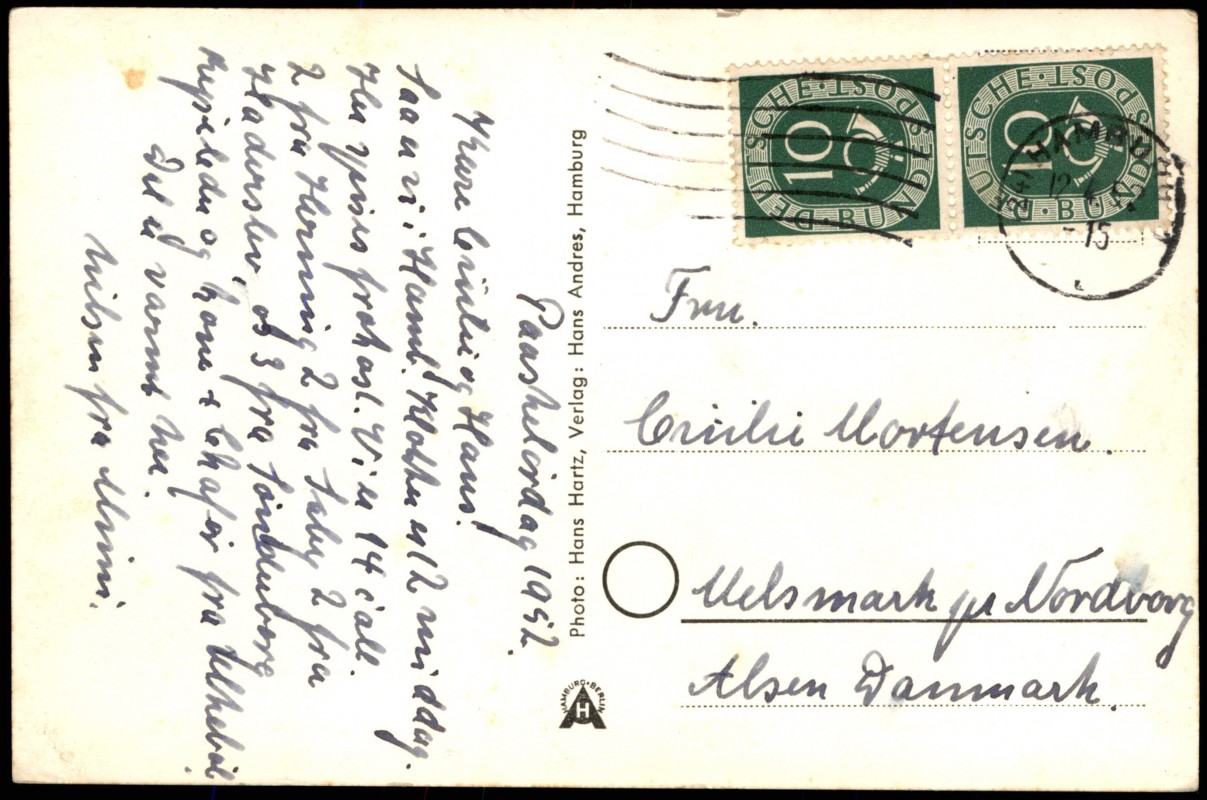 Paaskelördag 1952.
Kære Cicilie og Hans!
Saa er vi i Hamb. Klokken er 12 middag.
Her spises frokost. Vi er 14 i alt.
2 fra Herning 2 fra Seby 2 fra
Haderslev, os 3 fra Sönderborg
Rejseleder og kone + Chafør fra Ulkeböl
Det er varmt her.
Hilsen fra Mimi.
Photo: Hans Hartz, Verlag: Hans Andres, Hamburg
HAMBURG · BERLIN
H
DEUTSCHE · POST
10
BUNDESPOST
DEUTSCHE · POST
10
BUNDESPOST
HAMBURG
12.4.5
- 15
Fru.
Cicilie Mortensen.
Melsmark pr Nordborg
Alsen Danmark.